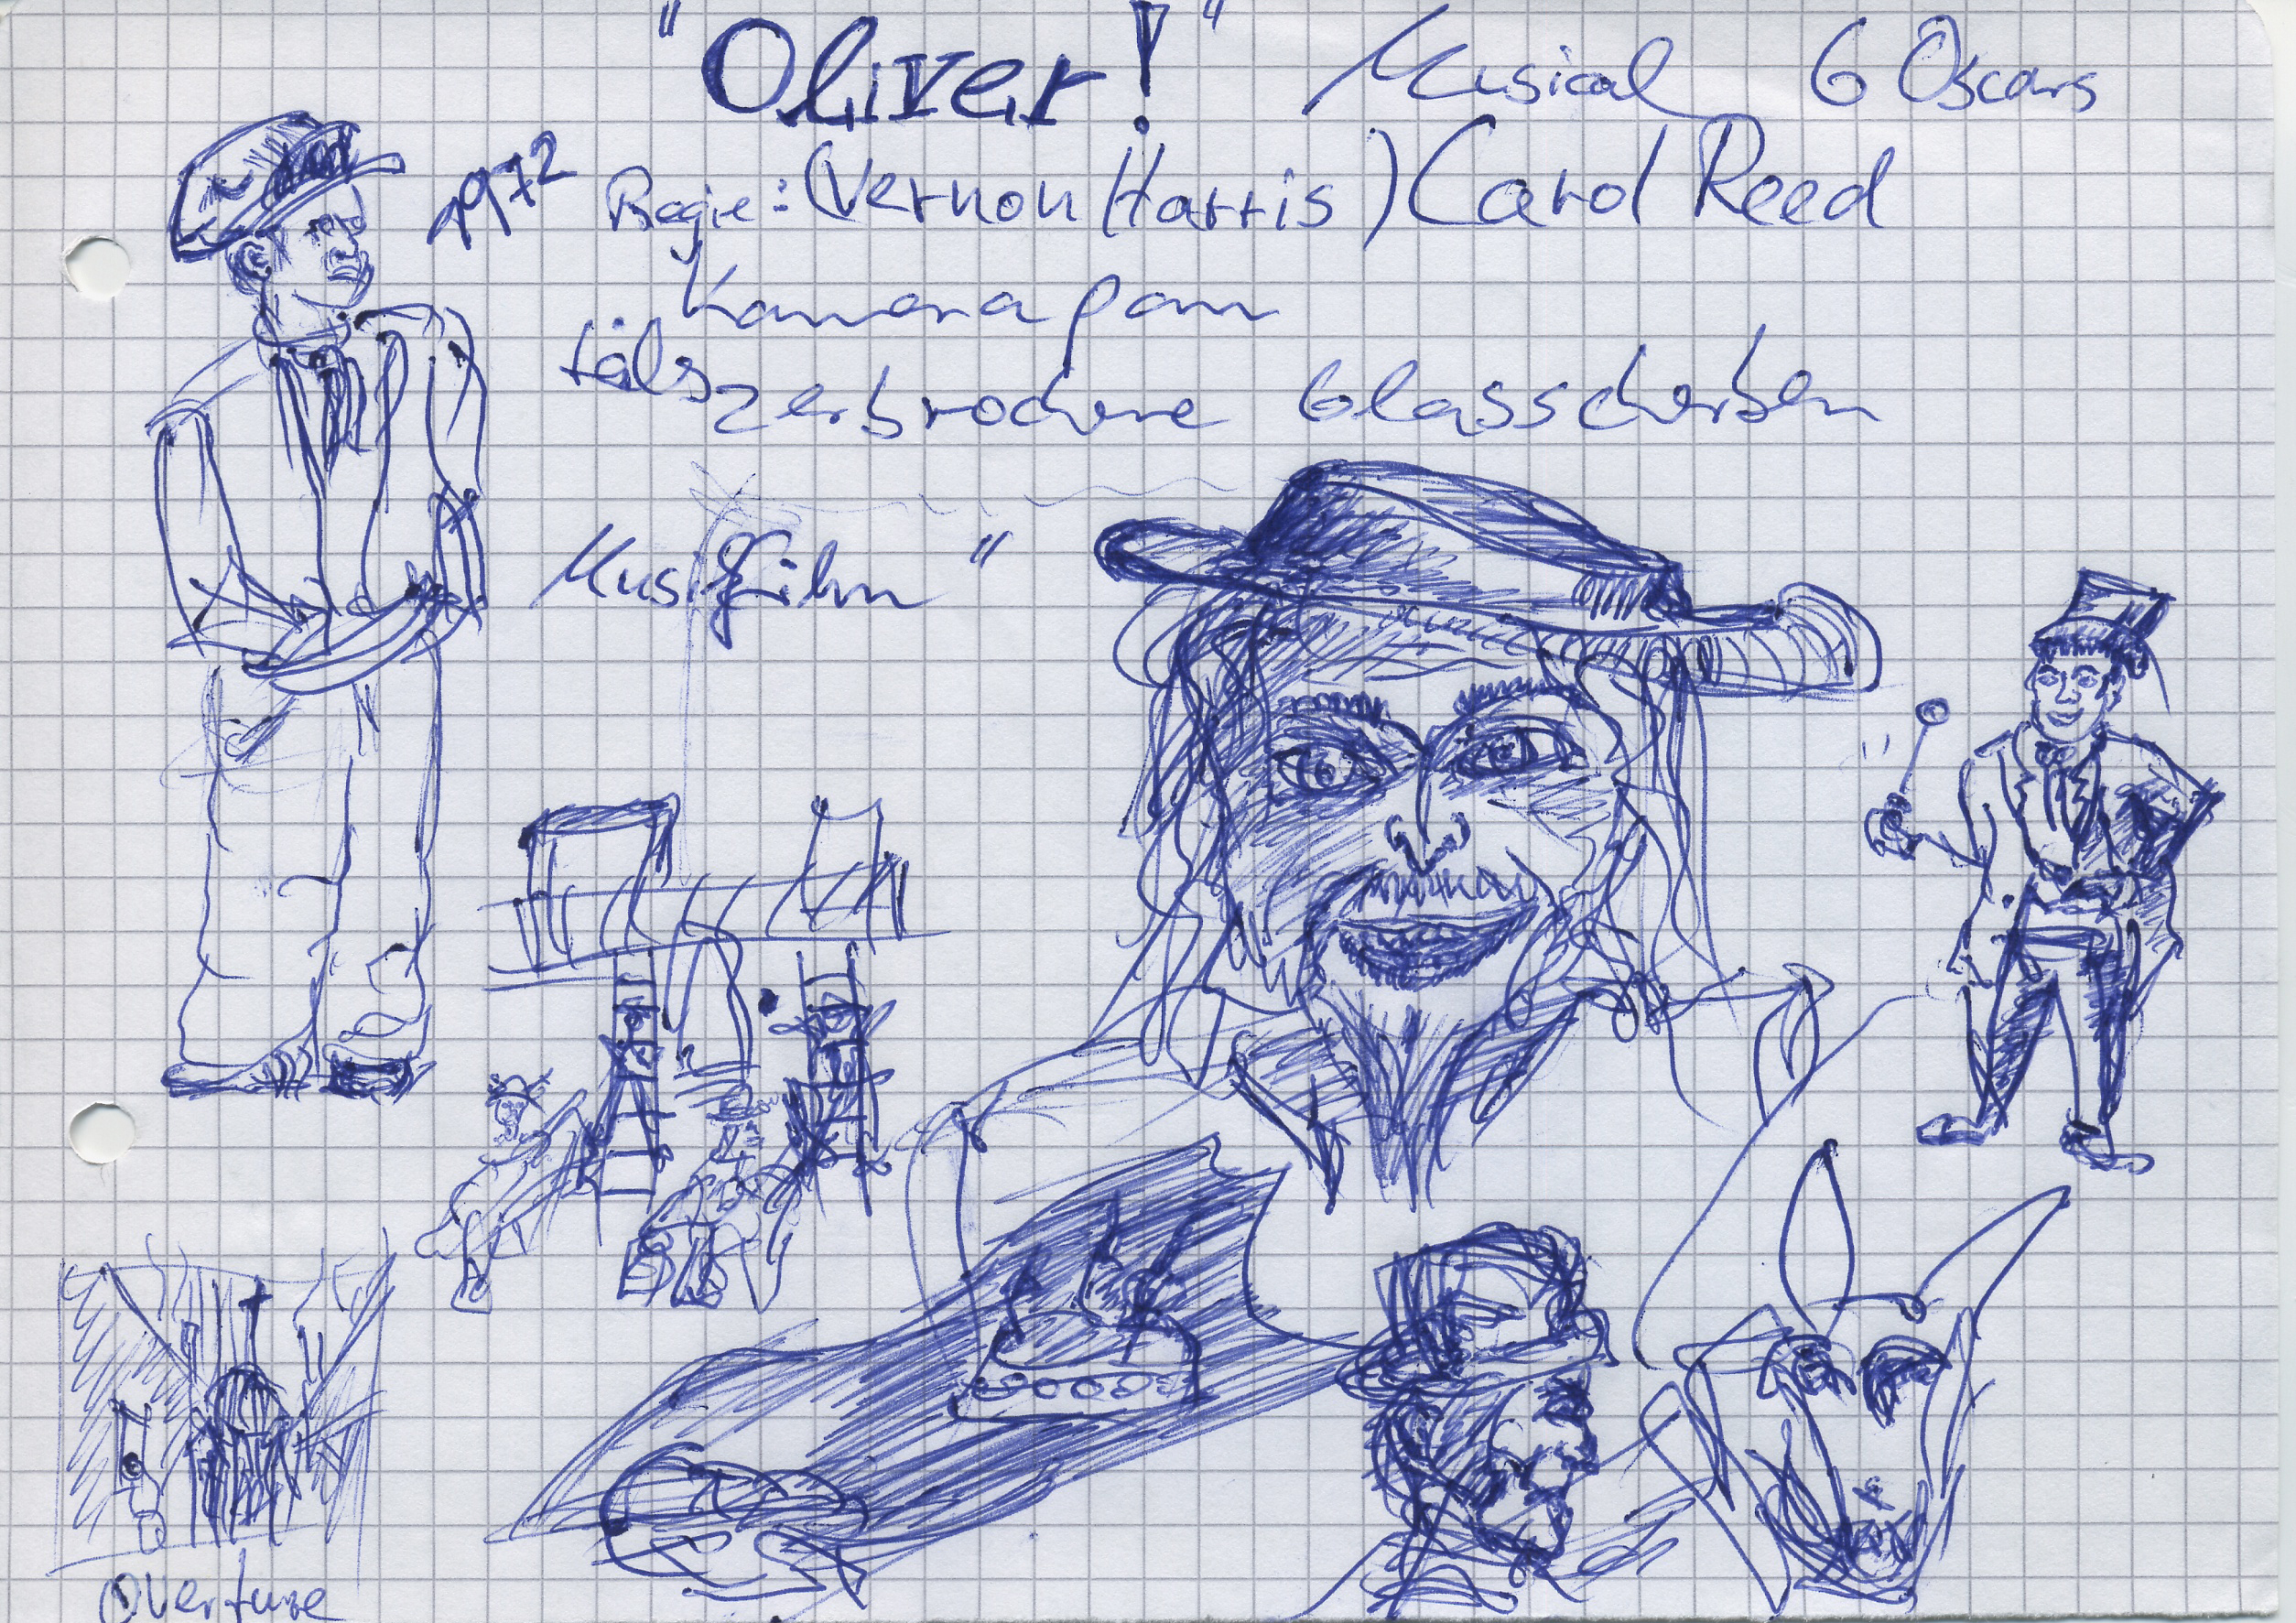 "Oliver!" Musical 6 Oscars
1972 Regie: (Vernon Harris) Carol Reed
Kamera
zerbrochene Glasscherben
Musikfilm"
Overture